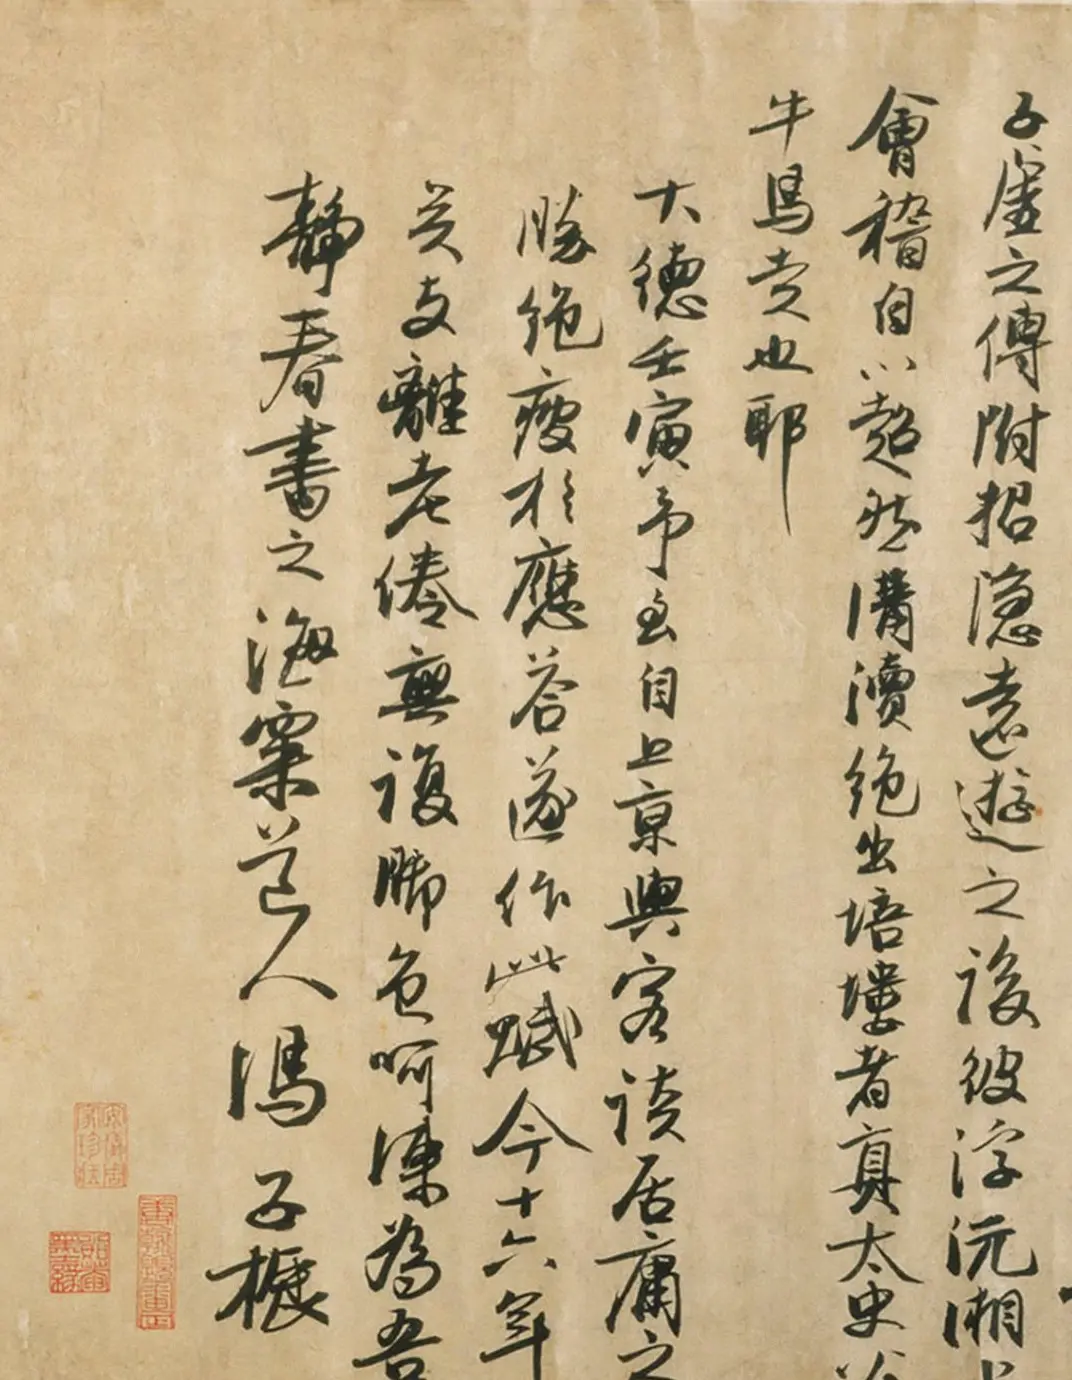 子虛之傳附招隱遠遊之後彼浮沅湘上
會稽自以超然溝瀆絕出培塿者真太史公
牛馬走也耶
大德壬寅予至自上京與客談居庸之
勝絕疲於應荅遂作此賦今十六年
矣支離老倦無復脚色呵凍為吾
靜春書之海粟道人馮子振